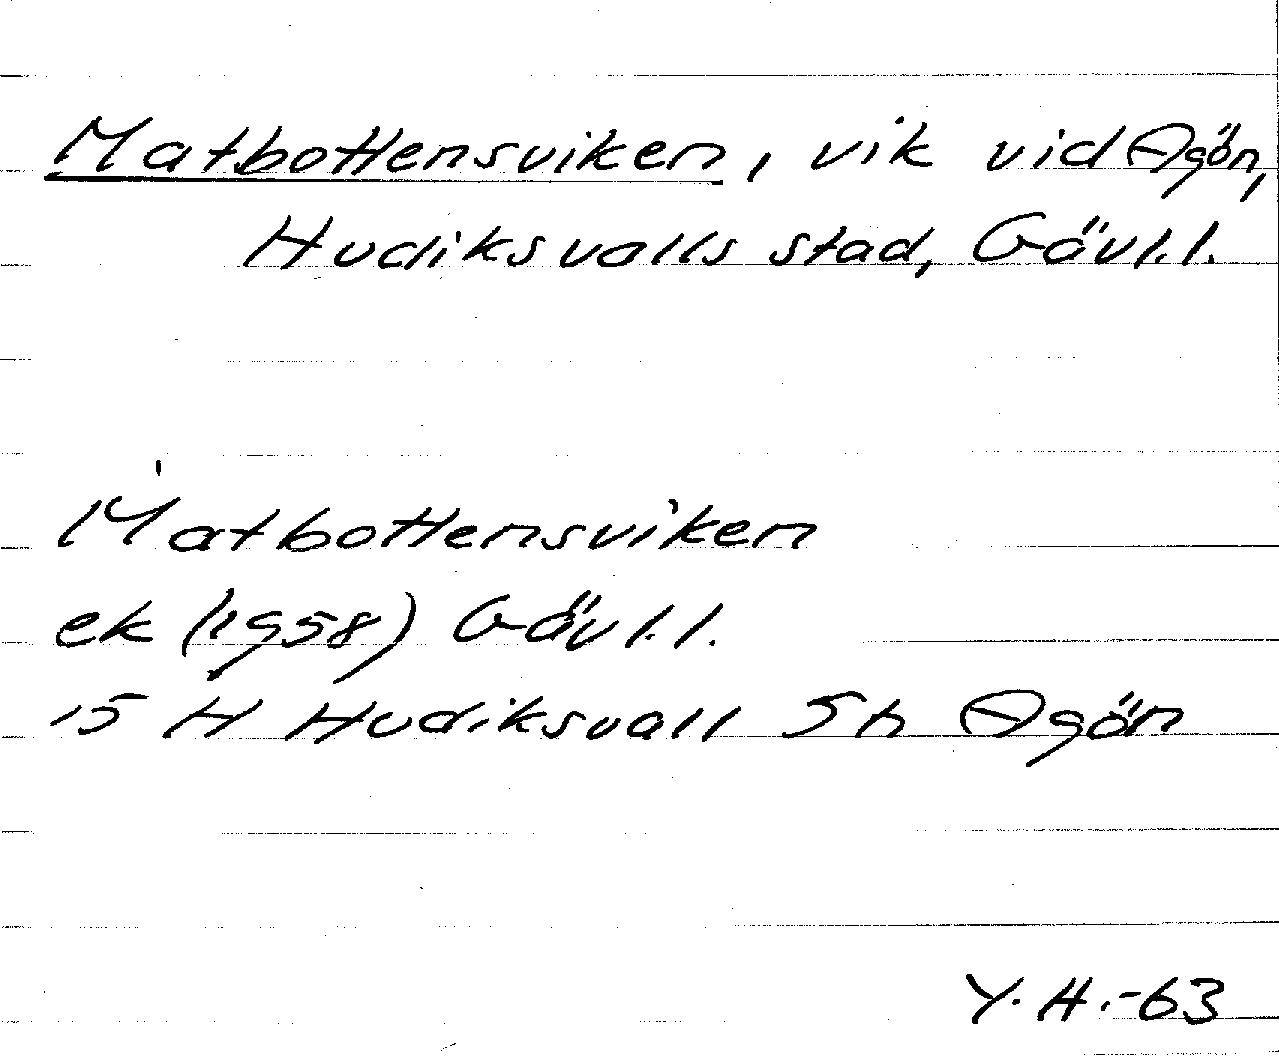 Matbottensviken, vik vid Agön,
Hudiksvalls stad, Gävl.l.
Matbottensviken
ek (1958) Gävl.l.
15 H Hudiksvall Sh Agön
Y.H.-63